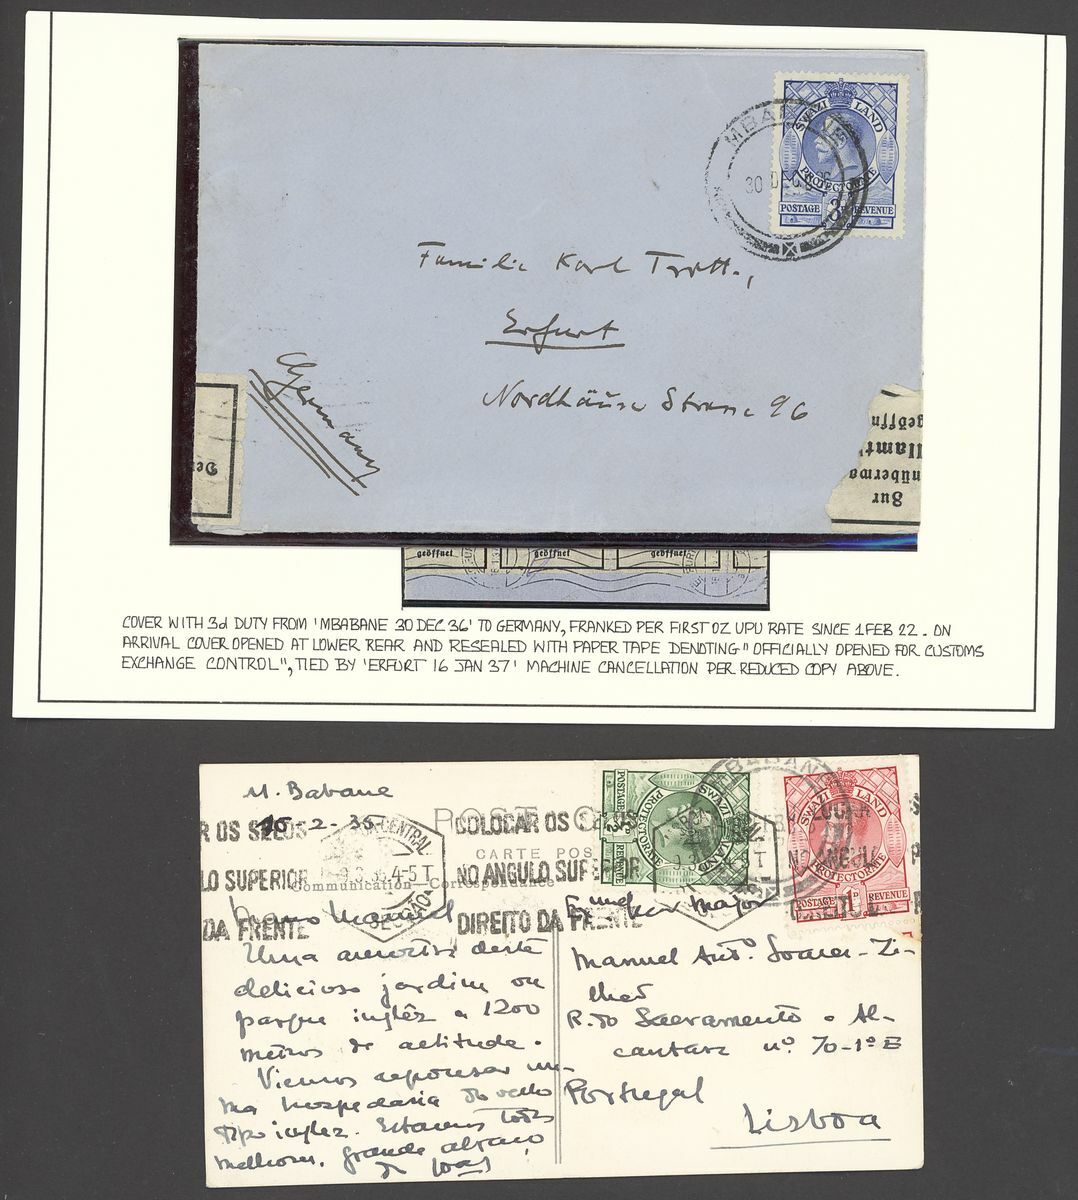 SWAZI LAND
MBABANE
30 DEC 36
PROTECTORATE
POSTAGE 3d REVENUE
Familie Karl Trott.,
Erfurt
Nordhäuser Strasse 96
Germany
geöffnet geöffnet geöffnet
COVER WITH 3d DUTY FROM 'MBABANE 30 DEC 36' TO GERMANY, FRANKED PER FIRST OZ UPU RATE SINCE 1 FEB 22. ON
ARRIVAL COVER OPENED AT LOWER REAR AND RESEALED WITH PAPER TAPE DENOTING "OFFICIALLY OPENED FOR CUSTOMS
EXCHANGE CONTROL", TIED BY 'ERFURT 16 JAN 37' MACHINE CANCELLATION PER REDUCED COPY ABOVE.
MBABANE
M. Babane
POST C
SWAZI LAND
PROTECTORATE
POSTAGE
SWAZI LAND
PROTECTORATE
POSTAGE 1d REVENUE
R OS SELOS
CENTRAL
COLOCAR OS SELOS
CARTE POS
LO SUPERIOR
4-5 T
NO ANGULO SUPERIOR
Communication - Correspondance
DA FRENTE
DIREITO DA FRENTE
Manuel
Uma amostra deste
delicioso jardim ou
parque inglês a 1200
metros de altitude.
Viemos repousar nu-
ma hospedaria do velho
tipo inglez. Estamos todos
melhores. Grande abraço
Major
Manuel Antº. Soares-Zi-
lhão
R. do Sacramento a Al-
cantara nº 70-1º E
Portugal
Lisboa